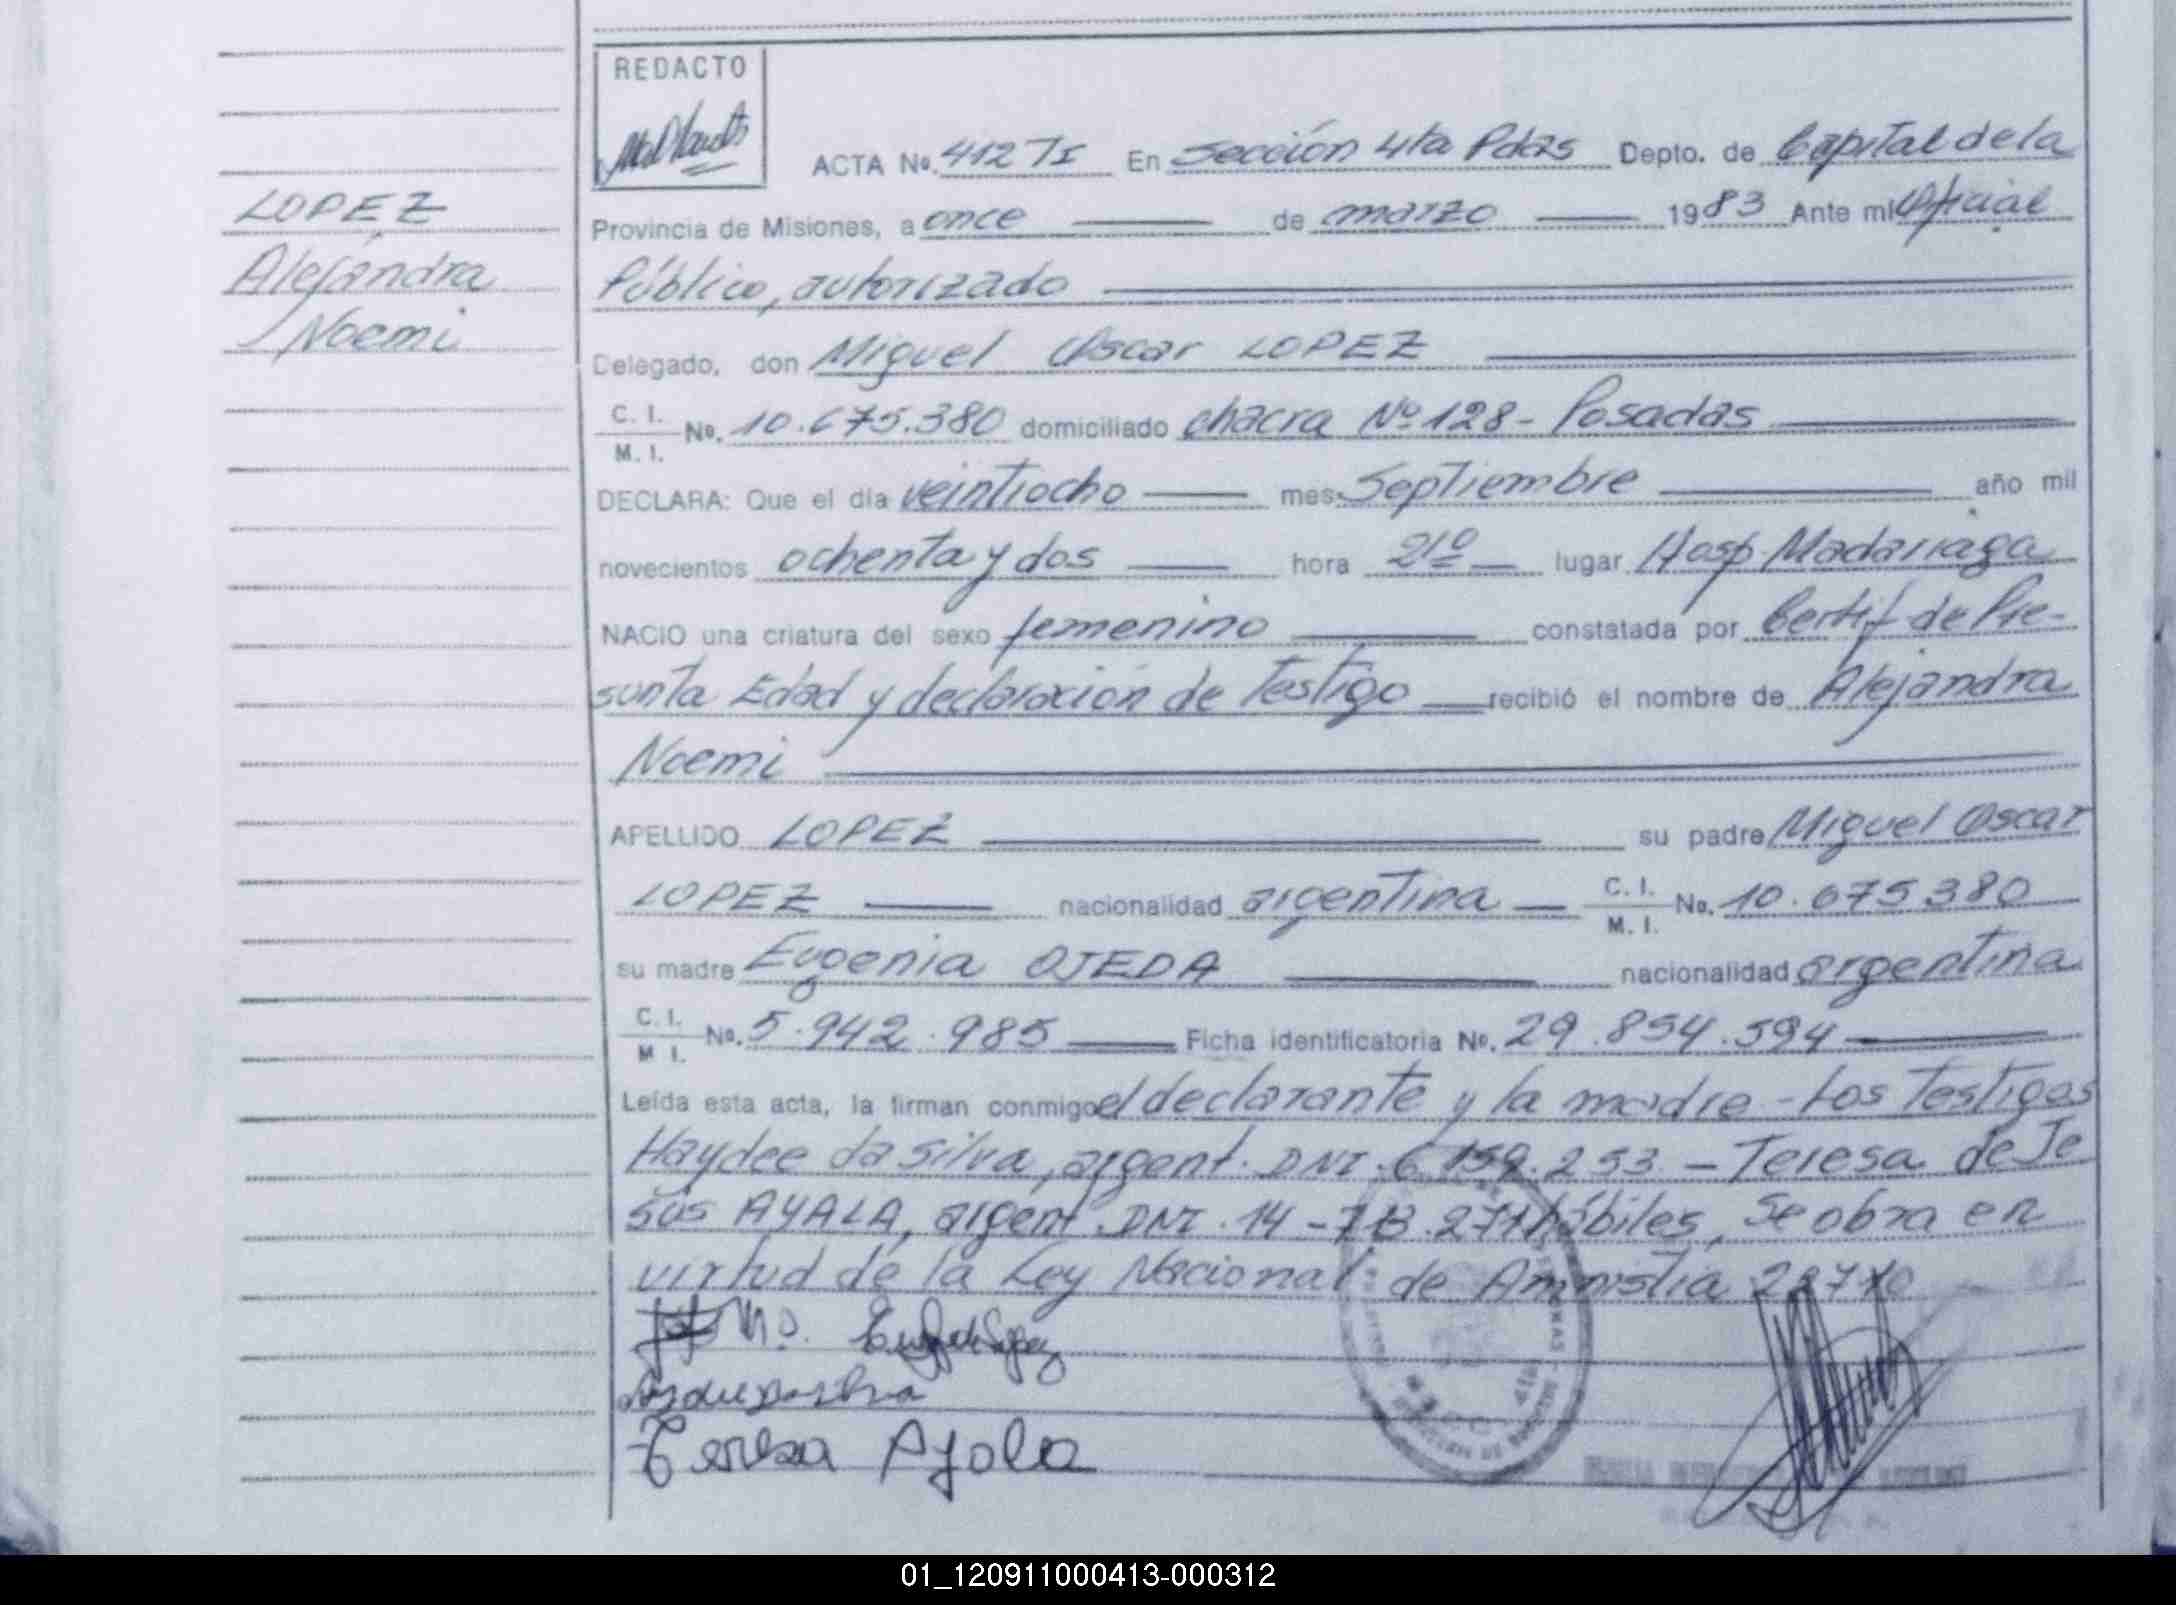 REDACTO
ACTA No. 412 TI En Sección 4ta Pdas Depto. de Capital de la
LOPEZ
Alejandra
Noemi
Provincia de Misiones, a once de marzo 1983 Ante mi Oficial
Público, autorizado
Delegado, don Miguel Oscar LOPEZ
C. I.
M. I. No. 10.675.380 domiciliado chacra Nº 128 - Posadas
DECLARA: Que el día veintiocho mes Septiembre año mil
novecientos ochenta y dos hora 21º lugar Hosp Madariaga
NACIO una criatura del sexo femenino constatada por Certif de Pre-
sunta Edad y declaración de Testigo recibió el nombre de Alejandra
Noemi
APELLIDO LOPEZ su padre Miguel Oscar
LOPEZ nacionalidad argentina C. I. M. I. No. 10.675380
su madre Eugenia OJEDA nacionalidad argentina
C. I.
M I. No. 5.942.985 Ficha identificatoria No. 29.854.594
Leída esta acta, la firman conmigo el declarante y la madre - Los Testigos
Haydee da Silva, argent. DNI. 6.159.253 - Teresa de Je
sús AYALA, argent. DNI. 14 - hábiles, Se obra en
virtud de la Ley Nacional de Amnistia
Teresa Ayala
01_120911000413-000312